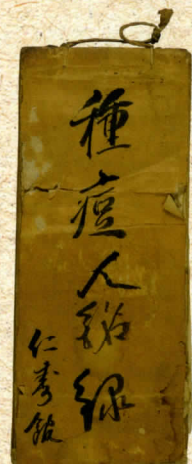 種痘人銘録
仁寿館